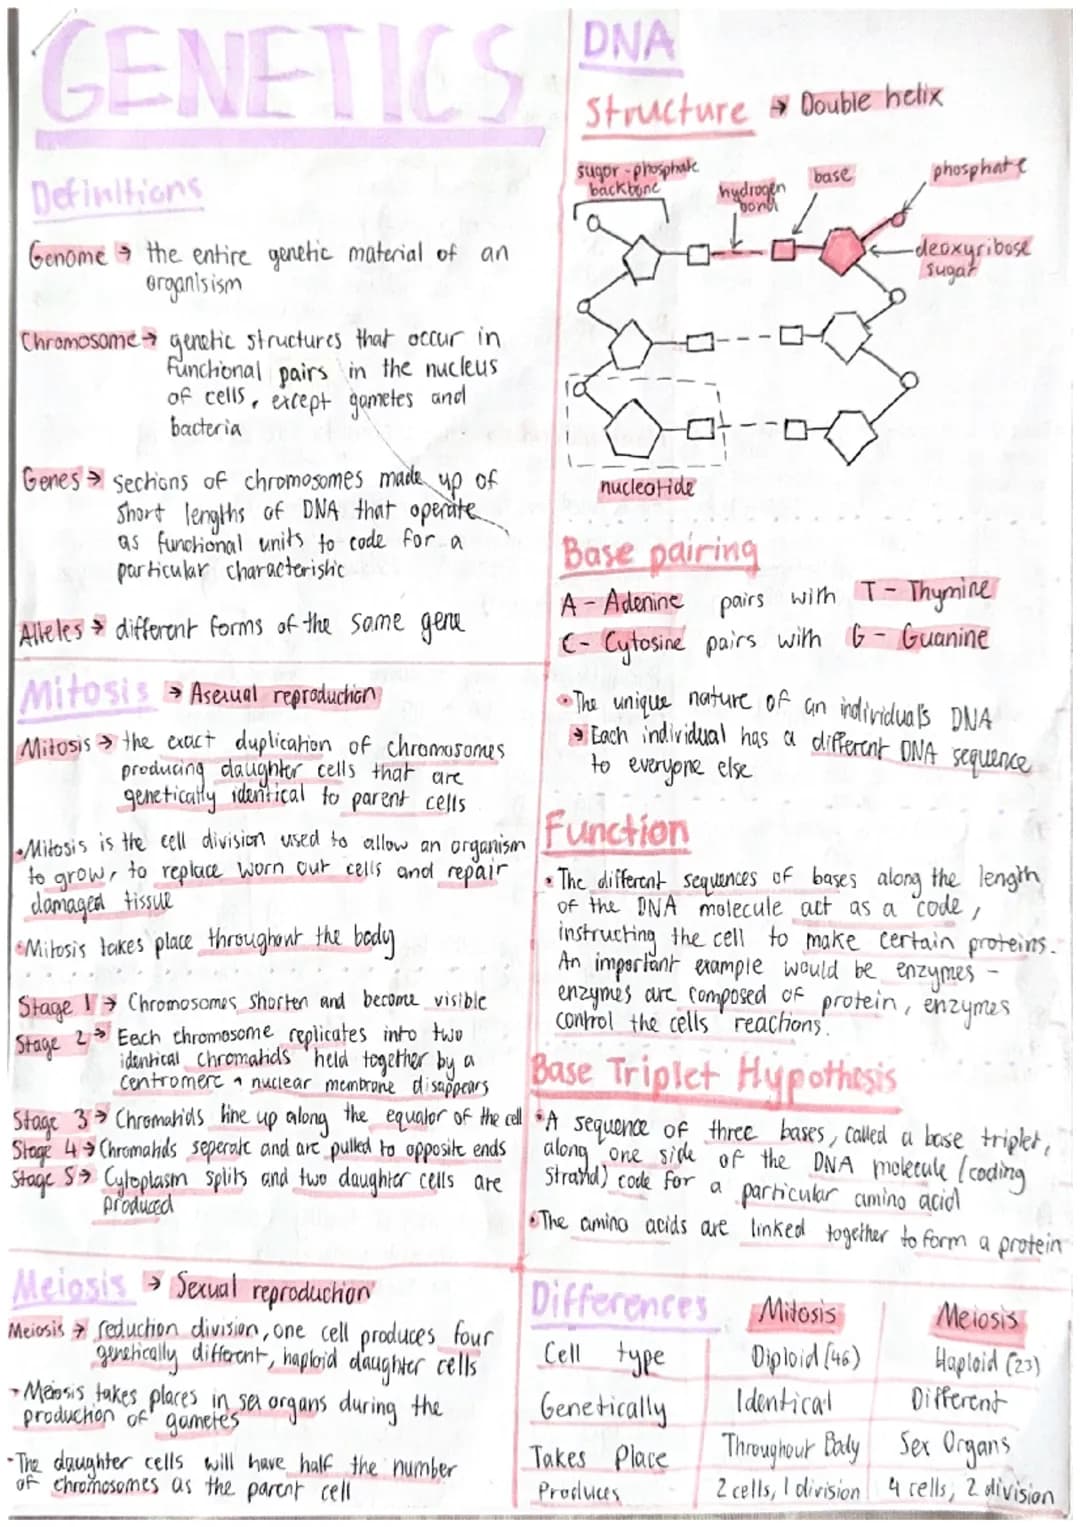 GENETICS
Definitions
Genome → the entire genetic material of an
organisism
Chromosome → genetic structures that occur in
functional pairs in the nucleus
of cells, except gametes and
bacteria
Genes → sections of chromosomes made up of
short lengths of DNA that operate
as functional units to code for a
particular characteristic
Alleles → different forms of the same gene
Mitosis → Asexual reproduction
Mitosis → the exact duplication of chromosomes
producing daughter cells that are
genetically identical to parent cells
•Mitosis is the cell division used to allow an organism
to grow, to replace worn out cells and repair
damaged tissue
•Mitosis takes place throughout the body
Stage 1 → Chromosomes shorten and become visible
Stage 2 → Each chromosome replicates into two
identical chromatids held together by a
centromere, nuclear membrane disappears
Stage 3 → Chromatids line up along the equator of the cell
Stage 4 → Chromatids seperate and are pulled to opposite ends
Stage 5 → Cytoplasm splits and two daughter cells are
produced
Meiosis → Sexual reproduction
Meiosis → reduction division, one cell produces four
genetically different, haploid daughter cells
• Meiosis takes places in sex organs during the
production of gametes
•The daughter cells will have half the number
of chromosomes as the parent cell
DNA
Structure → Double helix
sugar-phosphate
backbone
hydrogen
bond
base
phosphate
deoxyribose
sugar
nucleotide
Base pairing
A - Adenine pairs with T - Thymine
C - Cytosine pairs with G - Guanine
•The unique nature of an individual's DNA
→ Each individual has a different DNA sequence
to everyone else
Function
• The different sequences of bases along the length
of the DNA molecule act as a code,
instructing the cell to make certain proteins.
An important example would be enzymes -
enzymes are composed of protein, enzymes
control the cells reactions.
Base Triplet Hypothesis
•A sequence of three bases, called a base triplet,
along one side of the DNA molecule (coding
strand) code for a particular amino acid
•The amino acids are linked together to form a protein
Differences Mitosis Meiosis
Cell type Diploid (46) Haploid (23)
Genetically Identical Different
Takes Place Throughout Body Sex Organs
Produces 2 cells, 1 division 4 cells, 2 division